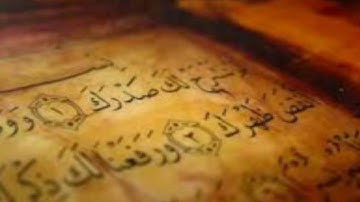 نَشْرَحْ لَكَ صَدْرَكَ ۝١ وَوَ
أَنقَضَ ظَهْرَكَ ۝٣ وَرَفَعْنَا لَكَ ذِكْرَ